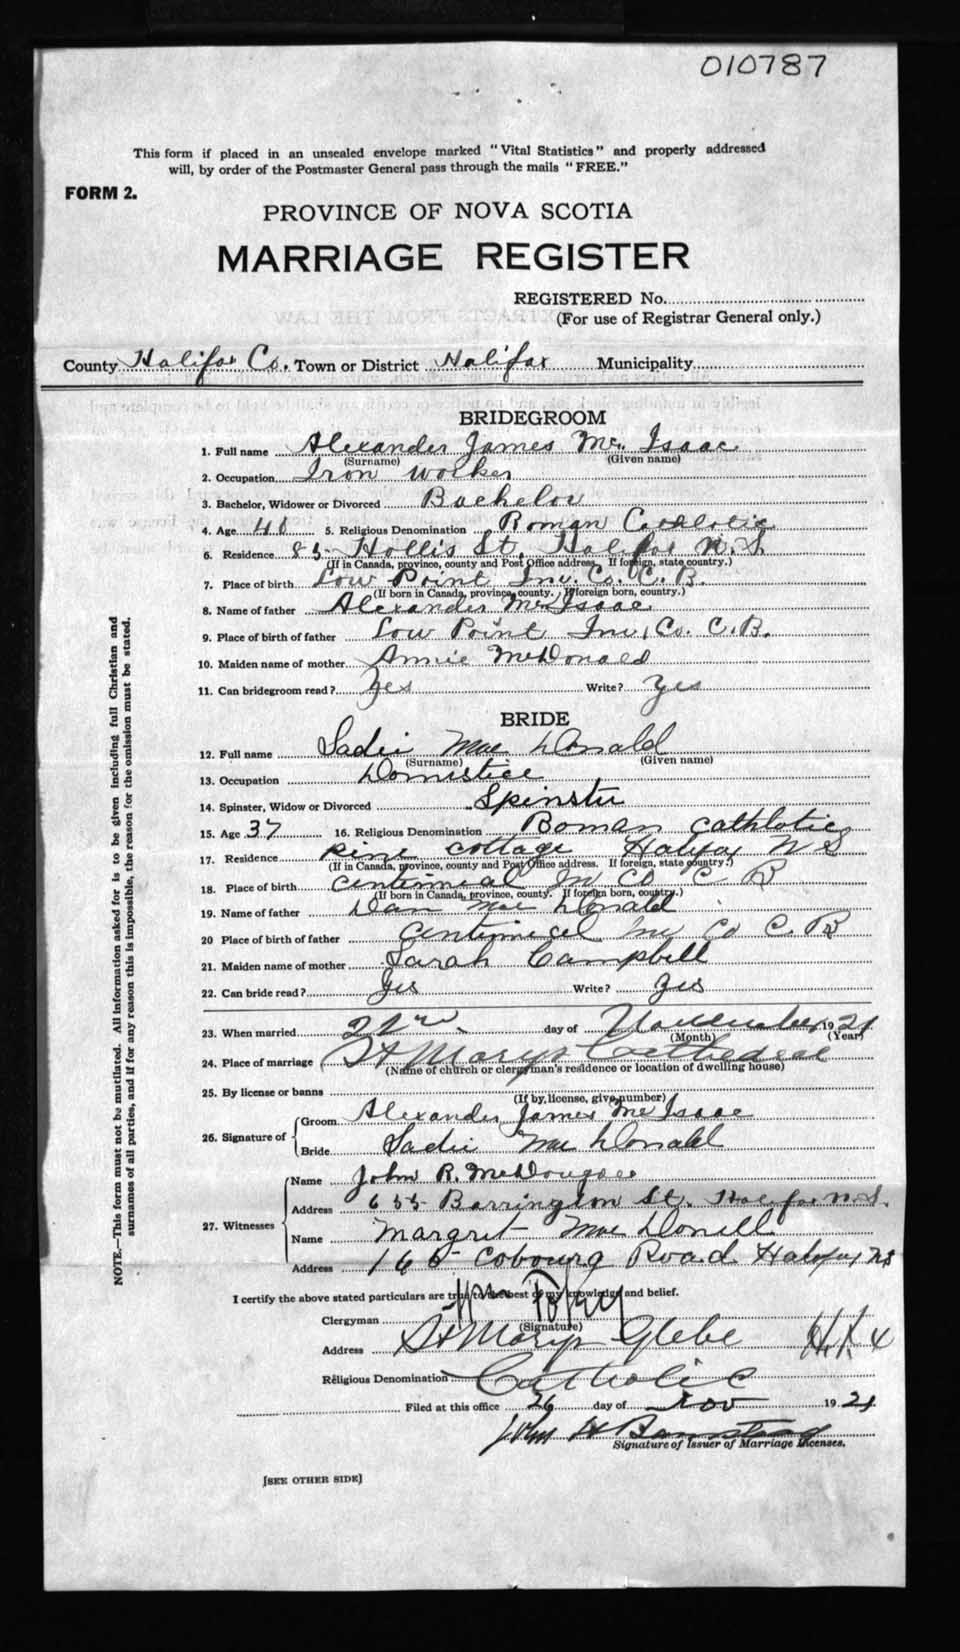 010787
This form if placed in an unsealed envelope marked "Vital Statistics" and properly addressed
will, by order of the Postmaster General pass through the mails "FREE."
FORM 2.
PROVINCE OF NOVA SCOTIA
MARRIAGE REGISTER
REGISTERED No.
(For use of Registrar General only.)
County Halifax Co. Town or District Halifax Municipality
BRIDEGROOM
1. Full name Alexander James Mc Isaac
(Surname) (Given name)
2. Occupation Iron worker
3. Bachelor, Widower or Divorced Bachelor
4. Age 5. Religious Denomination Roman Catholic
6. Residence 85 Hollis St. Halifax N.S.
(If in Canada, province, county and Post Office address. If foreign, state country.)
7. Place of birth Low Point Inv. Co. C.B.
(If born in Canada, province, county. If foreign born, country.)
8. Name of father Alexander McIsaac
9. Place of birth of father Low Point Inv. Co. C.B.
10. Maiden name of mother Annie McDonald
11. Can bridegroom read? Yes Write? Yes
BRIDE
12. Full name Sadie Mac Donald
(Surname) (Given name)
13. Occupation Domistice
14. Spinster, Widow or Divorced Spinster
15. Age 37 16. Religious Denomination Roman Cathlotic
17. Residence Pine Cottage Halifax N S
(If in Canada, province, county and Post Office address. If foreign, state country.)
18. Place of birth Centinnial In Co C B
(If born in Canada, province, county. If foreign born, country.)
19. Name of father Dan Mac Donald
20 Place of birth of father Co C. B
21. Maiden name of mother Sarah Campbell
22. Can bride read? Yes Write? Yes
23. When married day of November 1921
(Month) (Year)
24. Place of marriage St Marys Cathedral
(Name of church or clergyman's residence or location of dwelling house)
25. By license or banns
(If by license, give number)
26. Signature of Groom Alexander James McIsaac
Bride Sadie Mac Donald
27. Witnesses Name John R. McDougall
Address 655 Barrington St. Halifax N.S.
Name Margret Mac Donell
Address Cobourg Road Halifax NS
I certify the above stated particulars are true to the best of my knowledge and belief.
Clergyman Wm
(Signature)
Address St Marys Glebe Hfx
Religious Denomination Catholic
Filed at this office 26 day of Nov 1921
Signature of Issuer of Marriage Licenses.
[SEE OTHER SIDE]
NOTE.—This form must not be mutilated. All information asked for is to be given including full Christian and
surnames of all parties, and if for any reason this is impossible, the reason for the omission must be stated.